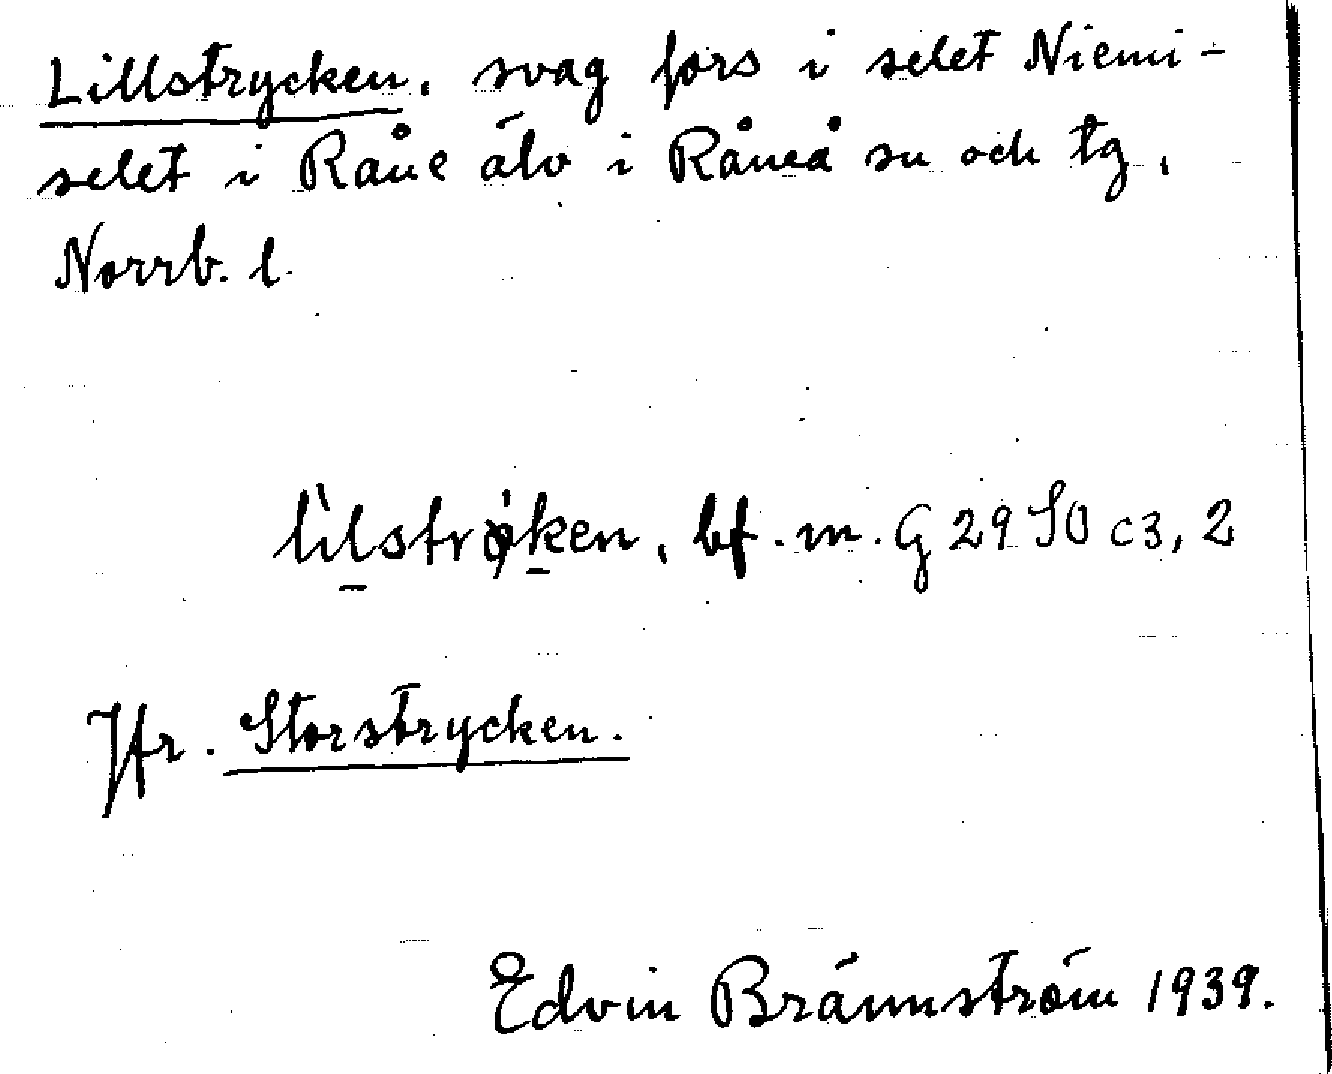 Lillstrycken, svag fors i selet Niemi-
selet i Råne älv i Råneå sn och tg,
Norrb. l.
lìlstrǿken, bf. m. G 29 SO c3, 2
Jfr. Storstrycken.
Edvin Brännström 1939.